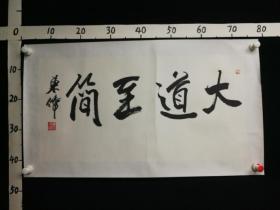 大道至简
0 10 20 30 40 50 60 70 80
10
20
30
40
50